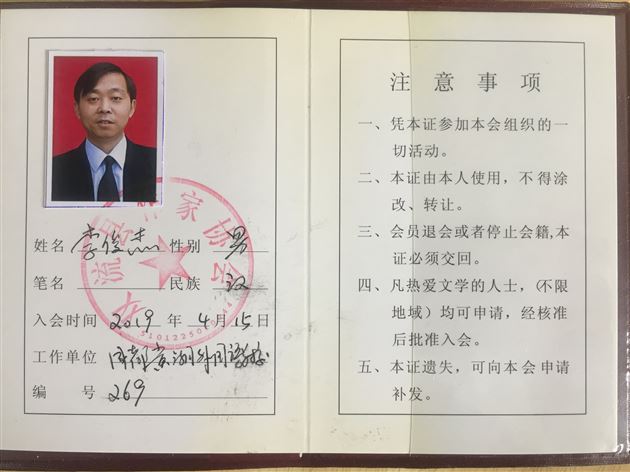 姓名 李俊杰 性别 男
笔名 民族 汉
入会时间 2019 年 4 月 15 日
工作单位 成都棠湖外国语学校
编 号 269
流 作家协会
5101225
注意事项
一、凭本证参加本会组织的一
切活动。
二、本证由本人使用，不得涂
改、转让。
三、会员退会或者停止会籍,本
证必须交回。
四、凡热爱文学的人士，(不限
地域）均可申请，经核准
后批准入会。
五、本证遗失，可向本会申请
补发。